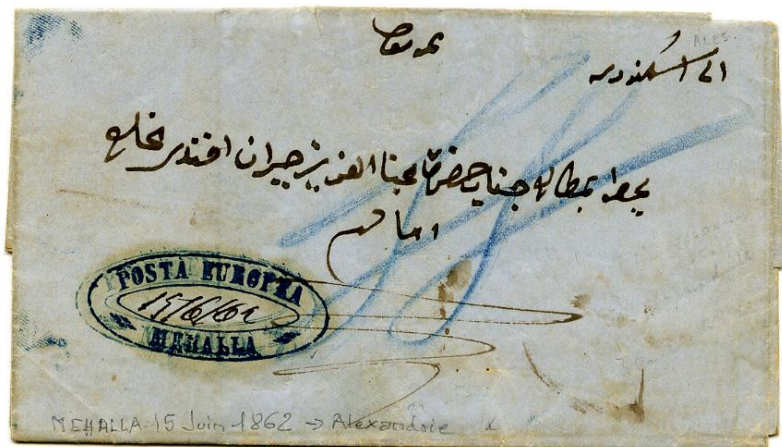 الى اسكندريه
يحظا بمطالعة جناب حضرة محبنا العزيز جبران افندي نخله
POSTA EUROPEA
15/6/62
MEHALLA
MEHALLA 15 Juin 1862 → Alexandrie